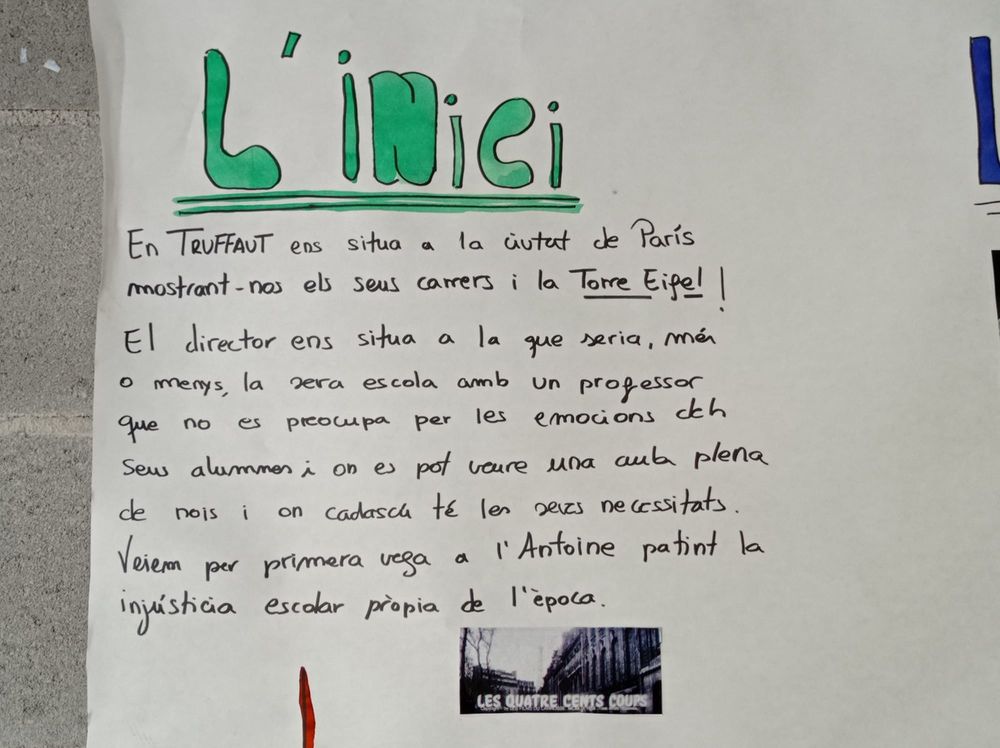 L'inici
En TRUFFAUT ens situa a la ciutat de París
mostrant-nos els seus carrers i la Torre Eifel!
El director ens situa a la que seria, més
o menys, la seva escola amb un professor
que no es preocupa per les emocions dels
seus alumnes i on es pot veure una aula plena
de nois i on cadascú té les seves necessitats.
Veiem per primera vega a l'Antoine patint la
injústicia escolar pròpia de l'època.
LES QUATRE CENTS COUPS